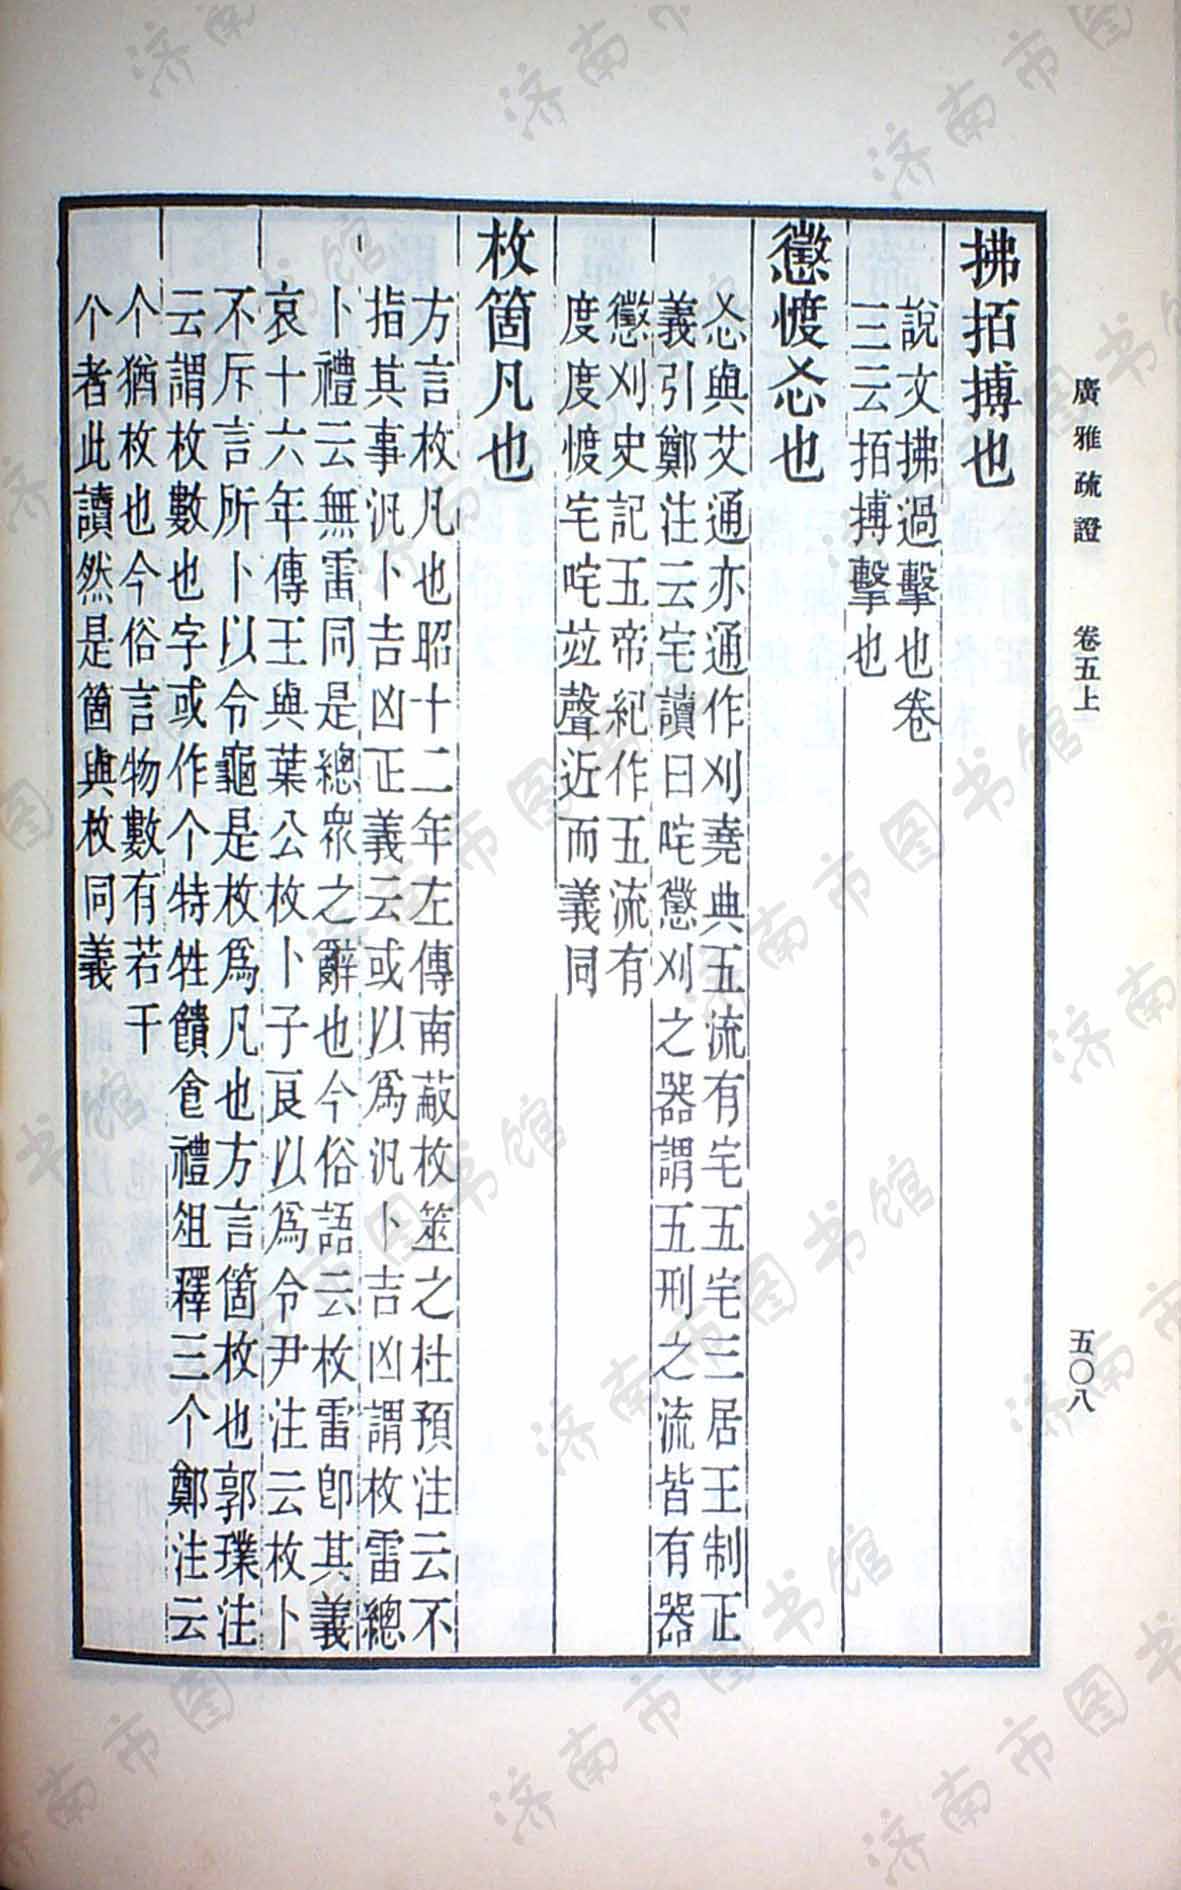 廣雅疏證 卷五上 五〇八
拂拍搏也
說文拂過擊也卷
三云拍搏擊也
懲㣻也
㣻與艾通亦通作刈堯典五流有宅五宅三居王制正
義引鄭注云宅讀曰咤懲刈之器謂五刑之流皆有器
懲刈史記五帝紀作五流有
度度宅咤竝聲近而義同
枚箇凡也
方言枚凡也昭十二年左傳南蒯枚筮之杜預注云不
指其事汎卜吉凶正義云或以爲汎卜吉凶謂枚雷總
卜禮云無雷同是總衆之辭也今俗語云枚雷卽其義
哀十六年傳王與葉公枚卜子良以爲令尹注云枚卜
不斥言所卜以令龜是枚爲凡也方言箇枚也郭璞注
云謂枚數也字或作个特牲饋食禮俎釋三个鄭注云
个猶枚也今俗言物數有若干
个者此讀然是箇與枚同義
济南市图书馆